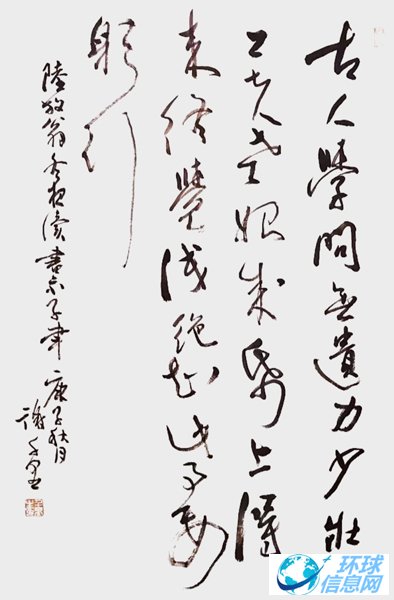 古人學問無遺力少壯
工夫老始成帋上得
來終覺淺絕知此事要
躬行
陸放翁冬夜讀書示子聿 庚子秋月
謝
环球
信息网